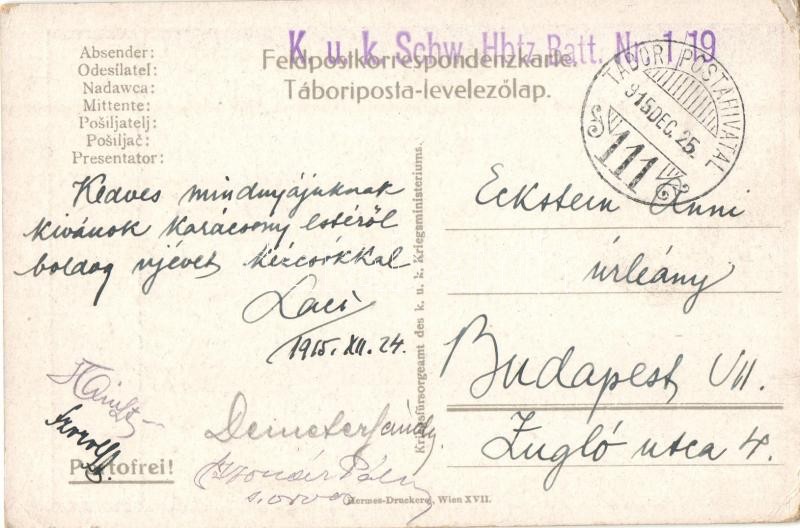 K. u. k. Schw. Hbtz. Batt. Nr. 1/19
Feldpostkorrespondenzkarte.
Táboriposta-levelezőlap.
Absender:
Odesílatel:
Nadawca:
Mittente:
Pošiljatelj:
Pošiljač:
Presentator:
TÁBORI POSTAHIVATAL
915 DEC. 25.
111
Kedves mindnyájuknak
kivánok karácsony estéről
boldog ujévet kézcsókkal
Laci
1915. XII. 24.
Eckstein Anni
úrleány
Budapest VII.
Zugló utca 4.
Kriegsfürsorgeamt des k. u. k. Kriegsministeriums.
Demeter
Pál
s. orvos
Portofrei!
Hermes-Druckerei, Wien XVII.